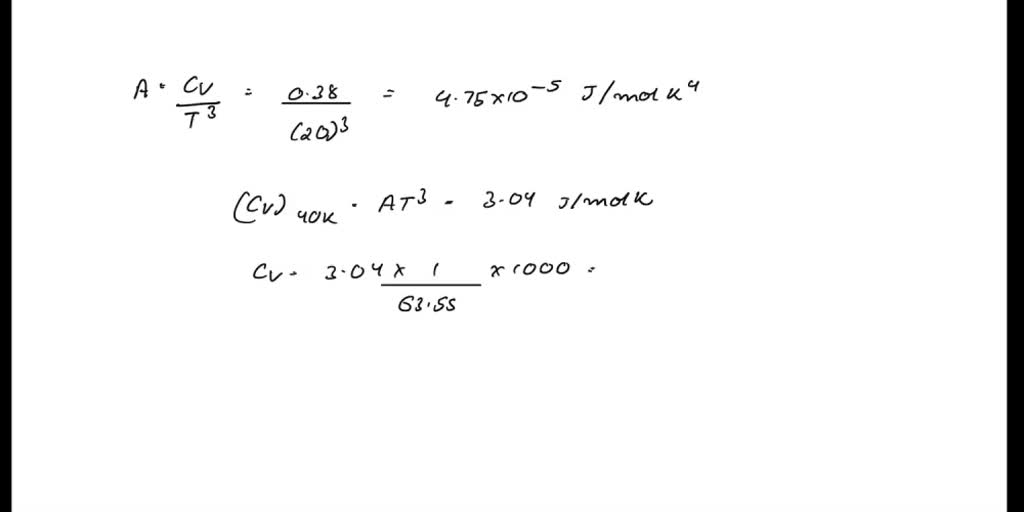 A = CV / T³ = 0.38 / (20)³ = 4.75×10⁻⁵ J/mol K⁴
(CV) 40K = AT³ = 3.04 J/mol K
CV = 3.04 × 1 / 63.55 × 1000 =